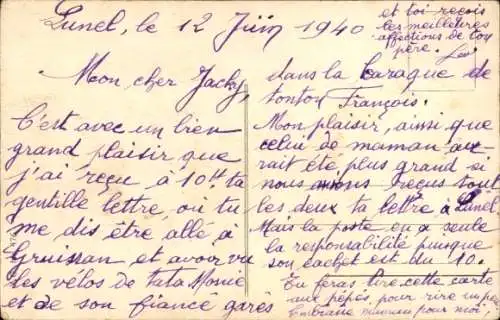 Lunel, le 12 Juin 1940
Mon cher Jacky,
C'est avec un bien
grand plaisir que
j'ai reçu à 10H ta
gentille lettre, où tu
me dis être allé à
Gruissan et avoir vu
les vélos de tata
et de son fiancé garés
dans la baraque de
tonton François.
Mon plaisir, ainsi que
celui de maman au-
rait été plus grand si
nous avions reçus tout
les deux ta lettre à Lunel
Mais la poste en a seule
la responsabilité puisque
son cachet est du 10.
Tu feras lire cette carte
aux pépés, pour rire un peu
Embrasse maman pour moi,
et toi reçois
les meilleures
affections de ton
père.